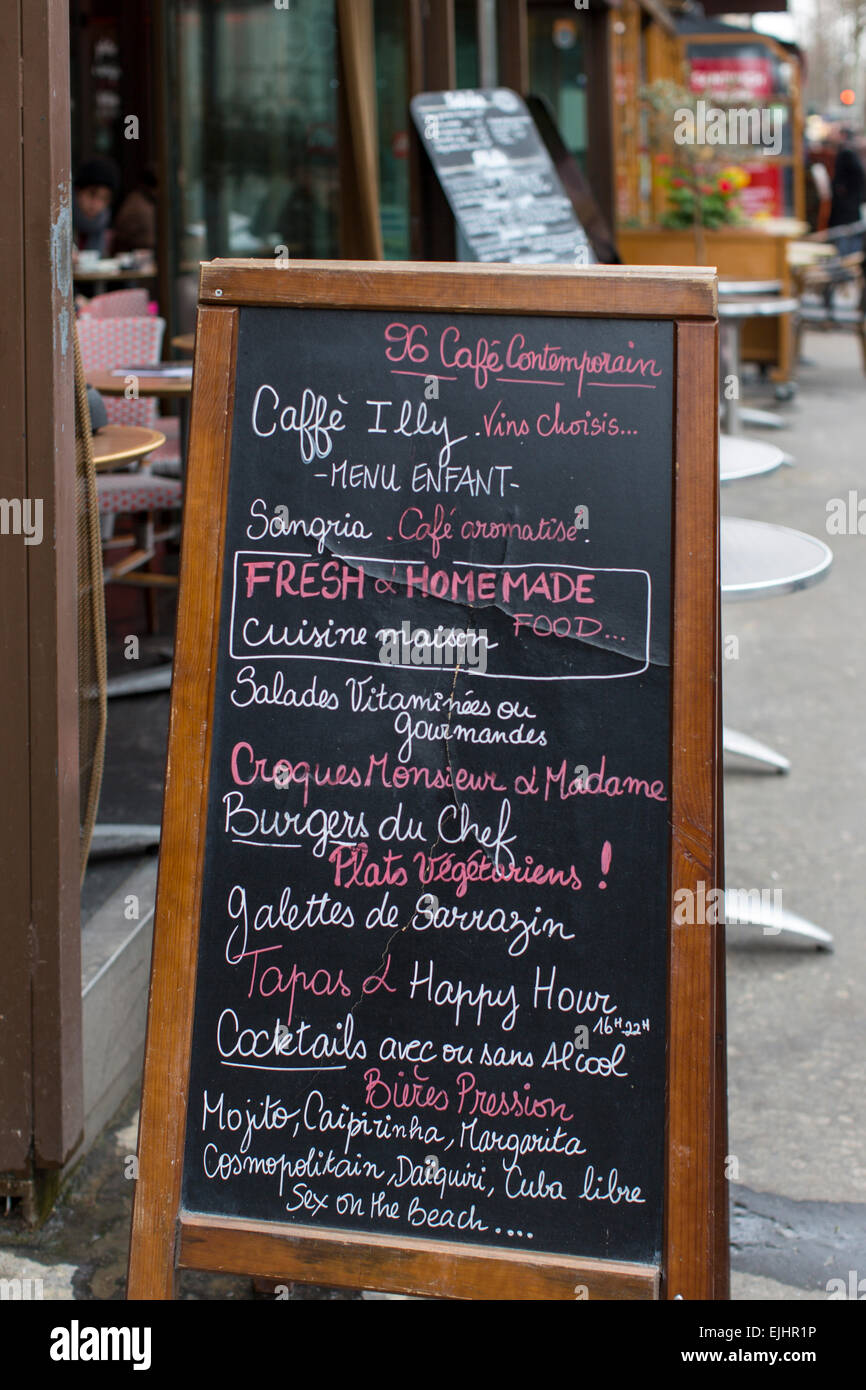 96 Café Contemporain
Caffè Illy . Vins choisis...
-MENU ENFANT-
Sangria . Café aromatisé .
FRESH & HOMEMADE
FOOD...
Cuisine maison
Salades Vitaminées ou
gourmandes
Croques Monsieur & Madame
Burgers du Chef
Plats Végétariens !
galettes de Sarrazin
Tapas & Happy Hour
16H-22H
Cocktails avec ou sans Alcool
Bières Pression
Mojito, Caïpirinha, Margarita
Cosmopolitain, Daïquiri, Cuba libre
Sex on the Beach ....
alamy
Image ID: EJHR1P
www.alamy.com